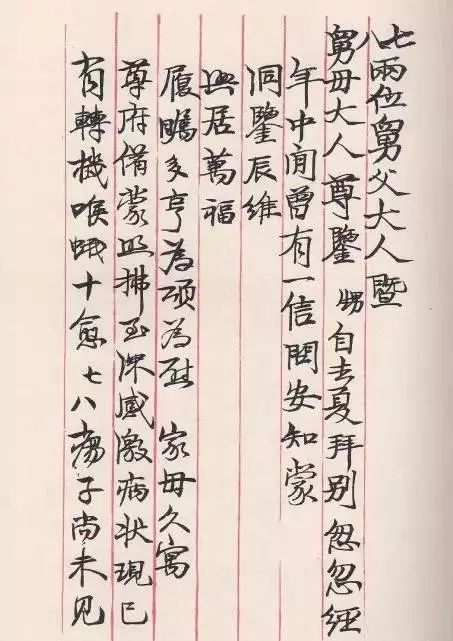 七八兩位舅父大人暨
舅母大人尊鑒 甥自去夏拜别忽忽經
年中間曾有一信問安知蒙
洞鑒辰維
興居萬福
履多亨為頌為慰 家母久寓
尊府備蒙照拂至深感激病状現已
有轉機喉蛾十愈七八瘍子尚未見